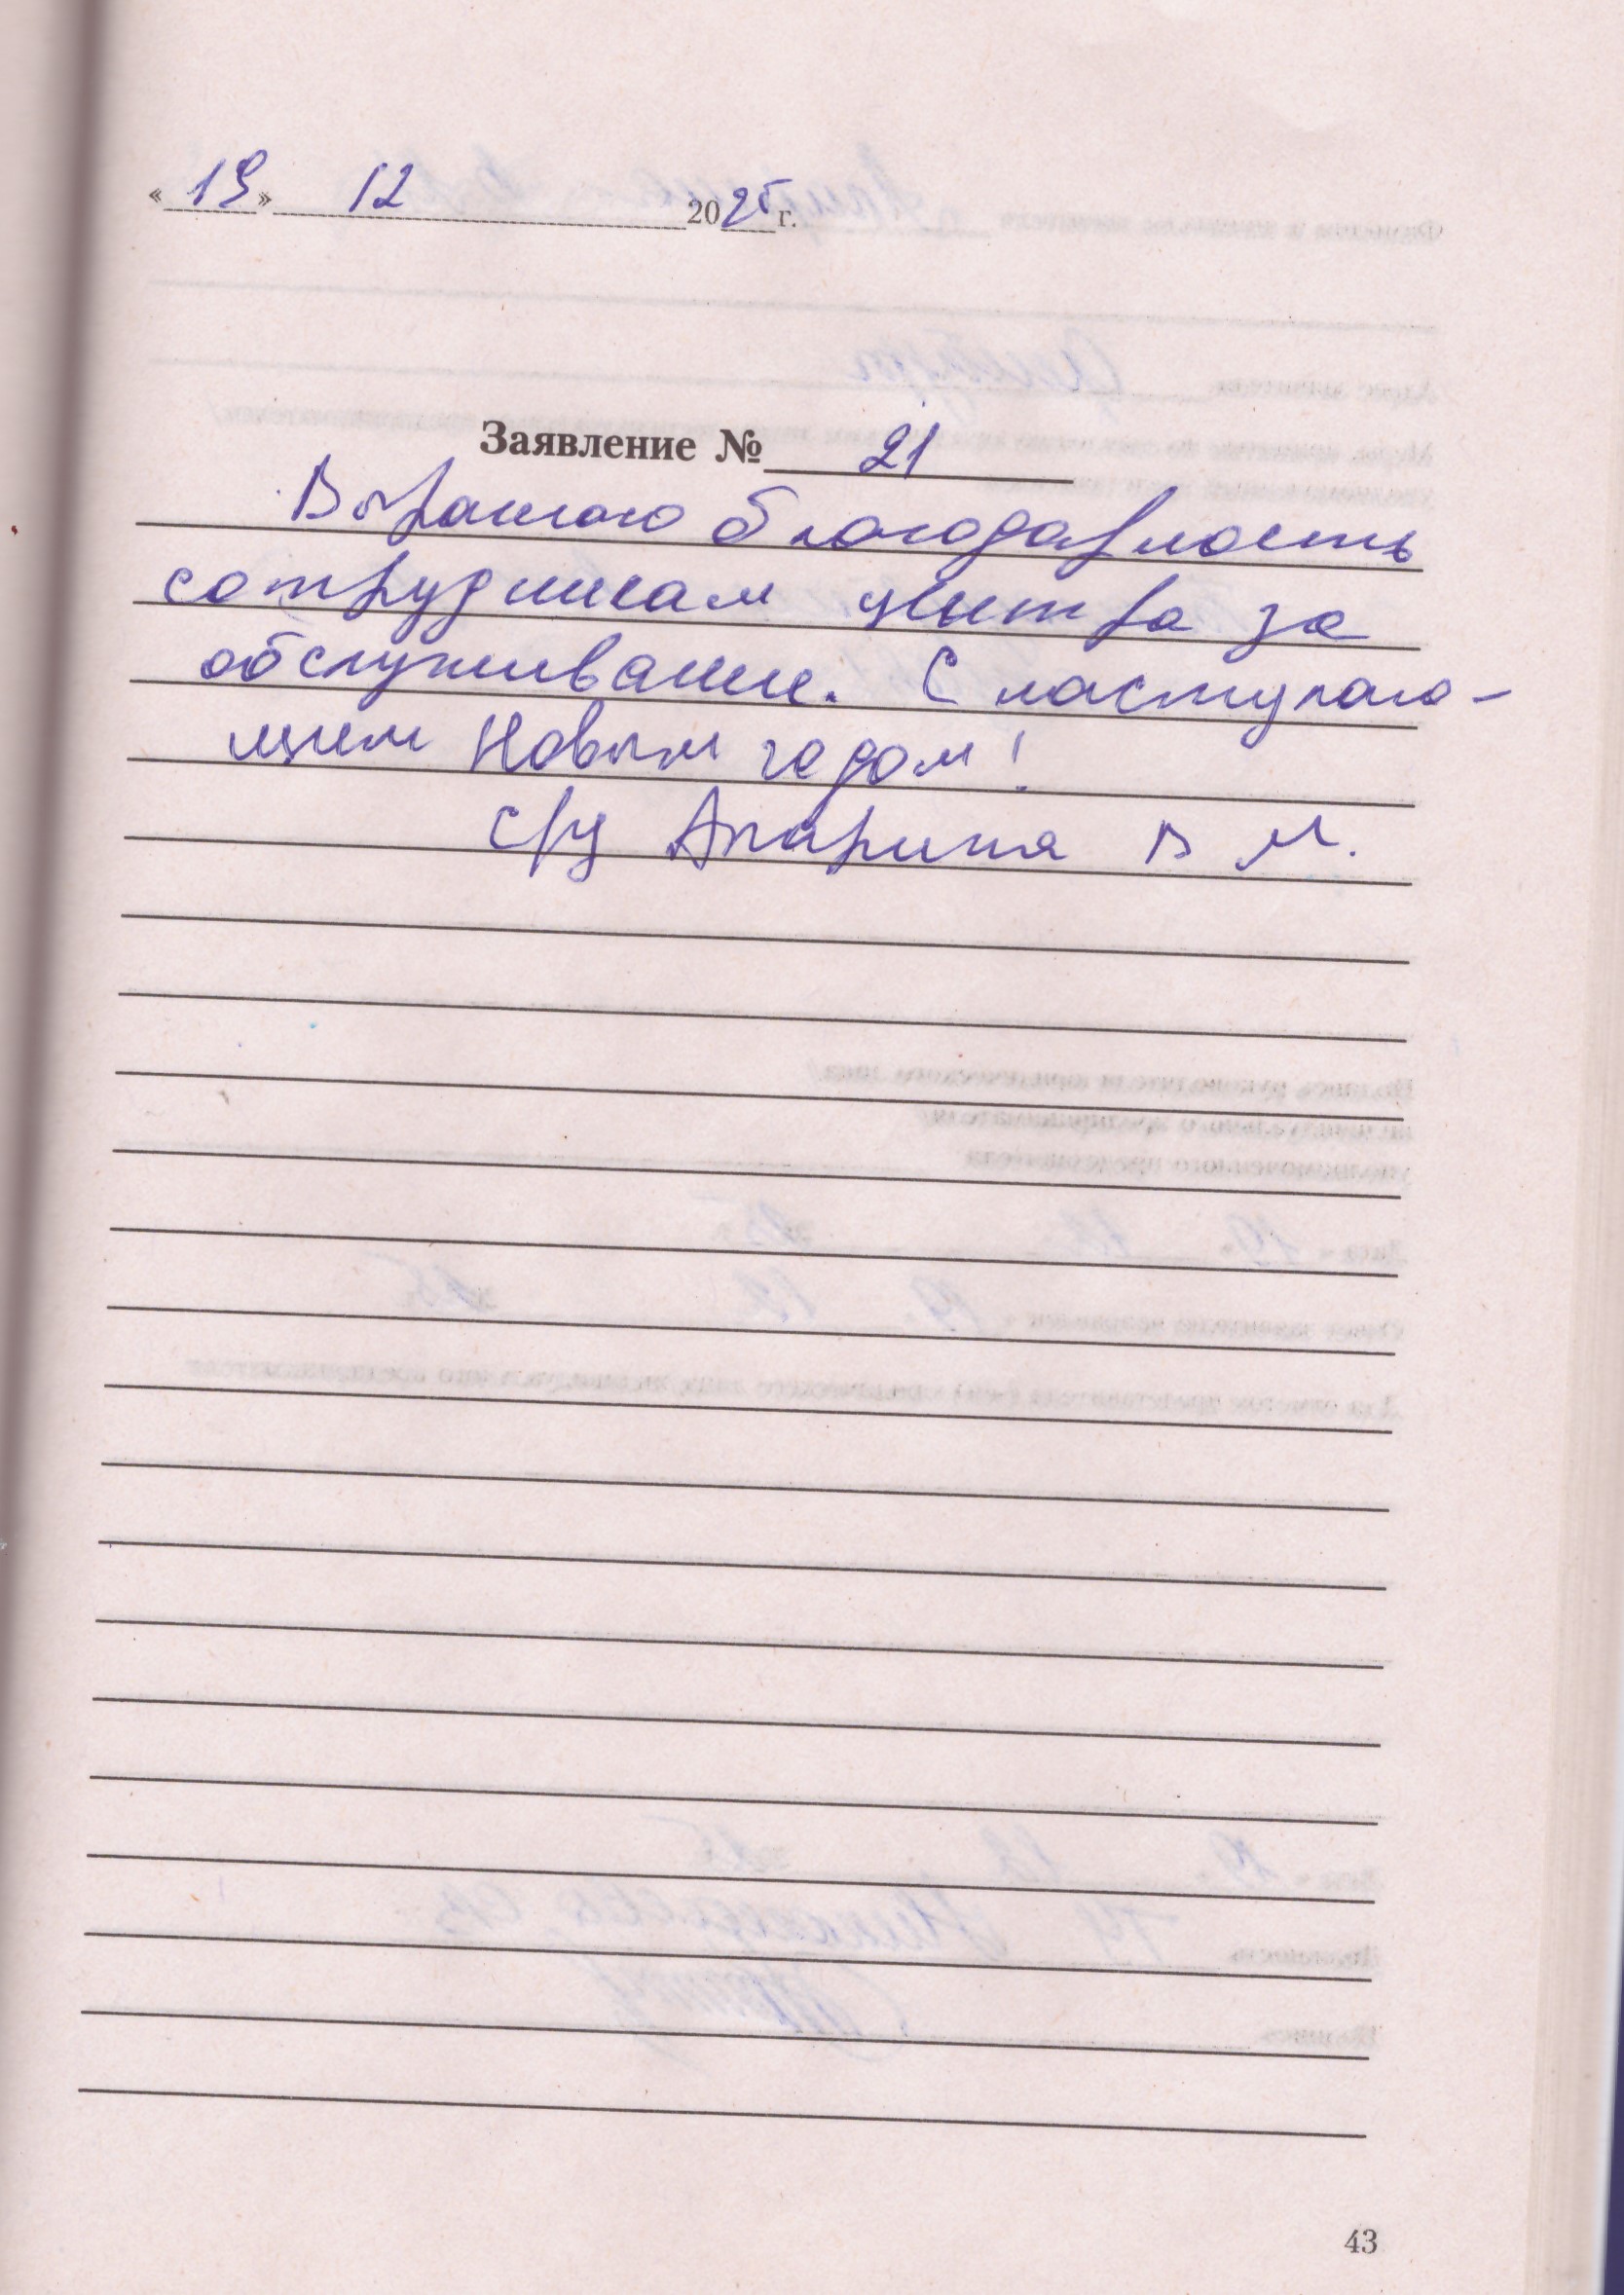 « 19 » 12 2025 г.
Заявление № 21
Выражаю благодарность
сотрудникам центра за
обслуживание. С наступаю-
щим Новым годом!
с/у Апарина В М.
43